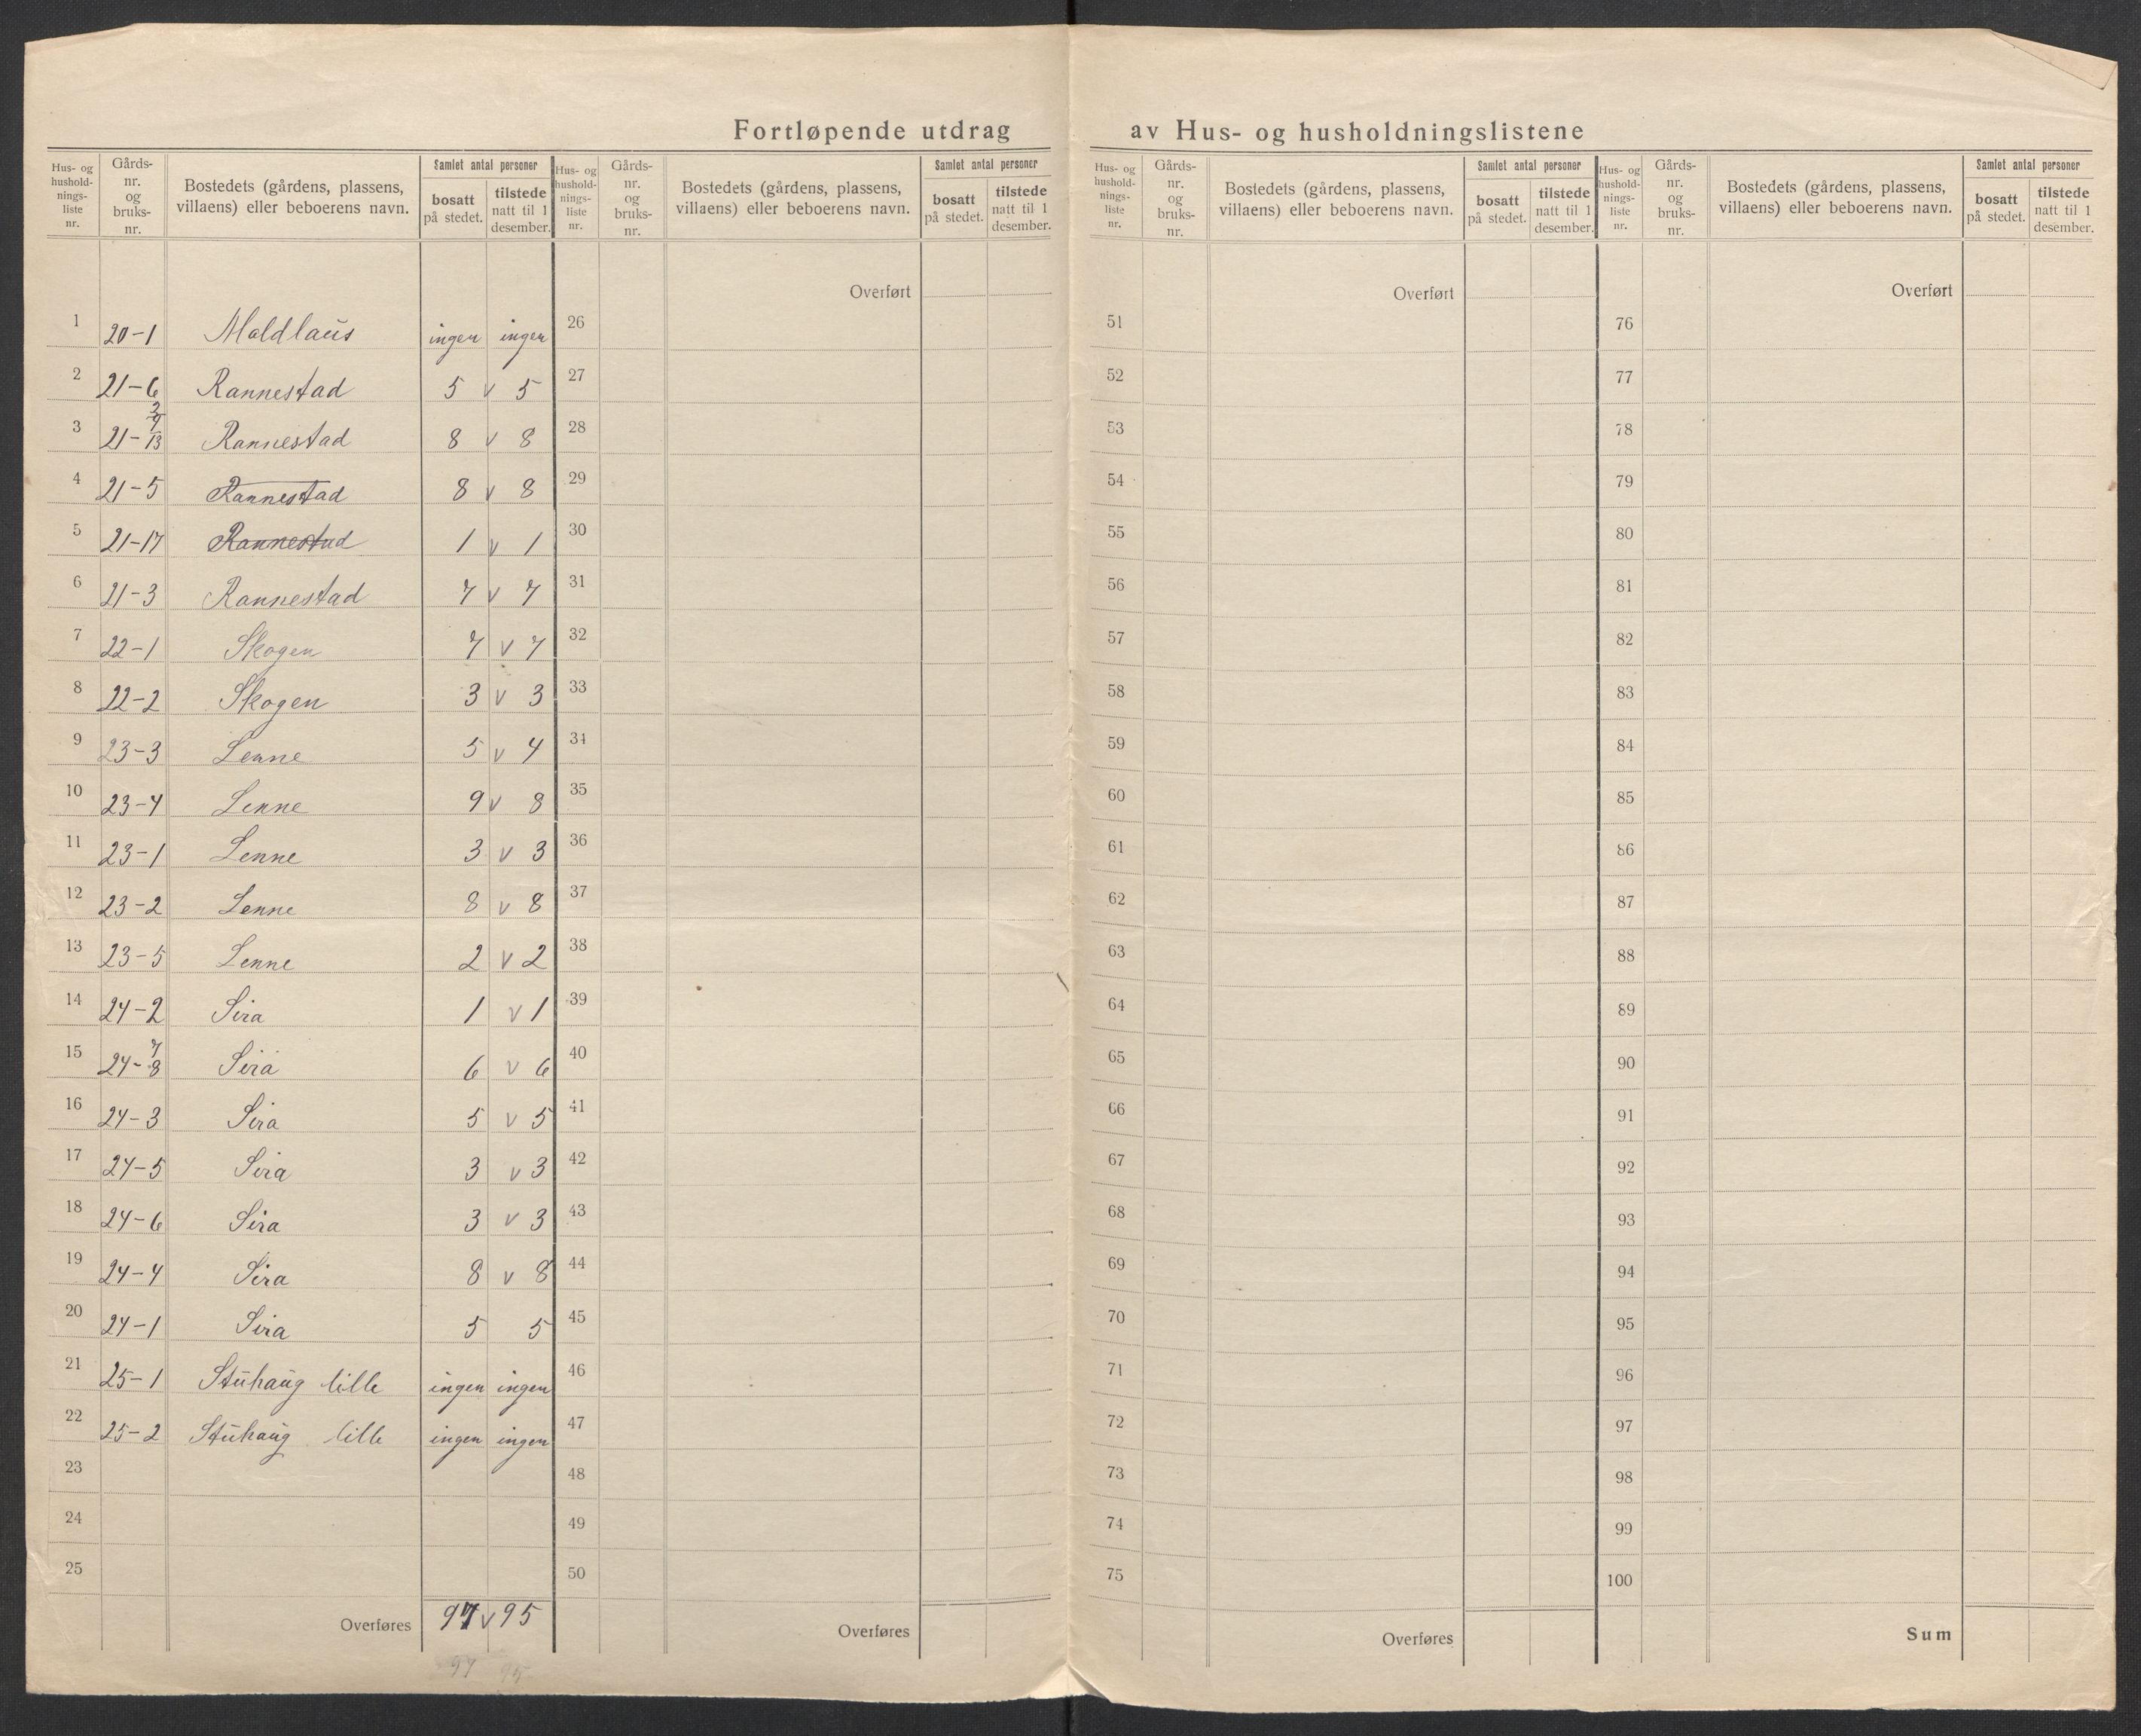 Fortløpende utdrag av Hus- og husholdningslistene
Hus- og husholdnings-liste nr. Gårds-nr. og bruks-nr. Bostedets (gårdens, plassens, villaens) eller beboerens navn. Samlet antal personer bosatt på stedet. tilstede natt til 1 desember.
Hus- og husholdnings-liste nr. Gårds-nr. og bruks-nr. Bostedets (gårdens, plassens, villaens) eller beboerens navn. Samlet antal personer bosatt på stedet. tilstede natt til 1 desember.
Hus- og husholdnings-liste nr. Gårds-nr. og bruks-nr. Bostedets (gårdens, plassens, villaens) eller beboerens navn. Samlet antal personer bosatt på stedet. tilstede natt til 1 desember.
Hus- og husholdnings-liste nr. Gårds-nr. og bruks-nr. Bostedets (gårdens, plassens, villaens) eller beboerens navn. Samlet antal personer bosatt på stedet. tilstede natt til 1 desember.
Overført Overført Overført
1 20-1 Moldlaüs ingen ingen 26 51 76
2 21-6 Rannestad 5 v 5 27 52 77
3 21- 13 Rannestad 8 v 8 28 53 78
4 21-5 Rannestad 8 v 8 29 54 79
5 21-17 Rannestad 1 v 1 30 55 80
6 21-3 Rannestad 7 v 7 31 56 81
7 22-1 Skogen 7 v 7 32 57 82
8 22-2 Skogen 3 v 3 33 58 83
9 23-3 Lenne 5 v 4 34 59 84
10 23-4 Lenne 9 v 8 35 60 85
11 23-1 Lenne 3 v 3 36 61 86
12 23-2 Lenne 8 v 8 37 62 87
13 23-5 Lenne 2 v 2 38 63 88
14 24-2 Sira 1 v 1 39 64 89
15 24-7 8 Sira 6 v 6 40 65 90
16 24-3 Sira 5 v 5 41 66 91
17 24-5 Sira 3 v 3 42 67 92
18 24-6 Sira 3 v 3 43 68 93
19 24-4 Sira 8 v 8 44 69 94
20 24-1 Sira 5 5 45 70 95
21 25-1 Stühaüg lille ingen ingen 46 71 96
22 25-2 Stühaüg lille ingen ingen 47 72 97
23 48 73 98
24 49 74 99
25 50 75 100
Overføres 97 v 95 Overføres Overføres Sum
97 95